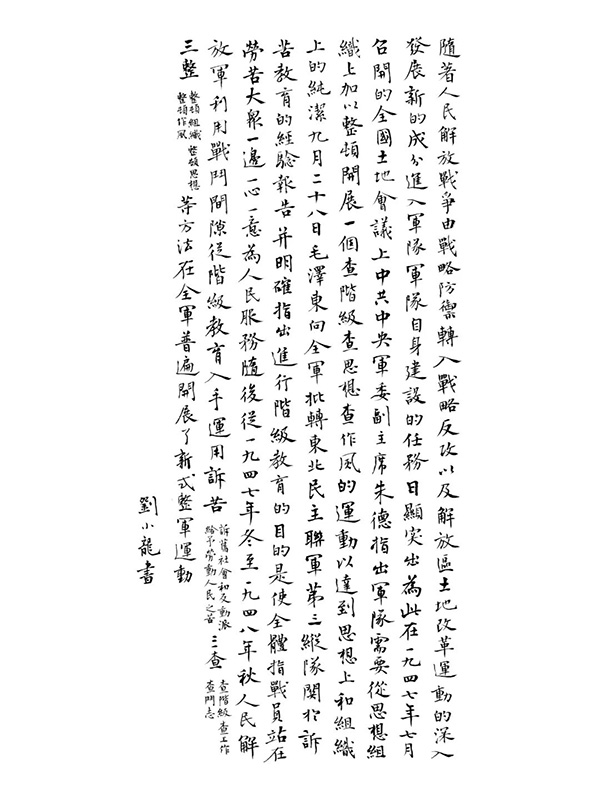 隨著人民解放戰爭由戰略防禦轉入戰略反攻以及解放區土地改革運動的深入
發展新的成分進入軍隊軍隊自身建設的任務日顯突出為此在一九四七年七月
召開的全國土地會議上中共中央軍委副主席朱德指出軍隊需要從思想組
織上加以整頓開展一個查階級查思想查作風的運動以達到思想上和組織
上的純潔九月二十八日毛澤東向全軍批轉東北民主聯軍第三縱隊關於訴
苦教育的經驗報告并明確指出進行階級教育的目的是使全體指戰員站在
勞苦大眾一邊一心一意為人民服務隨後從一九四七年冬至一九四八年秋人民解
放軍利用戰鬥間隙從階級教育入手運用訴苦訴舊社會和反動派給予勞動人民之苦三查查階級查工作查鬥志
三整整頓組織整頓思想整頓作風等方法在全軍普遍開展了新式整軍運動
劉小龍書